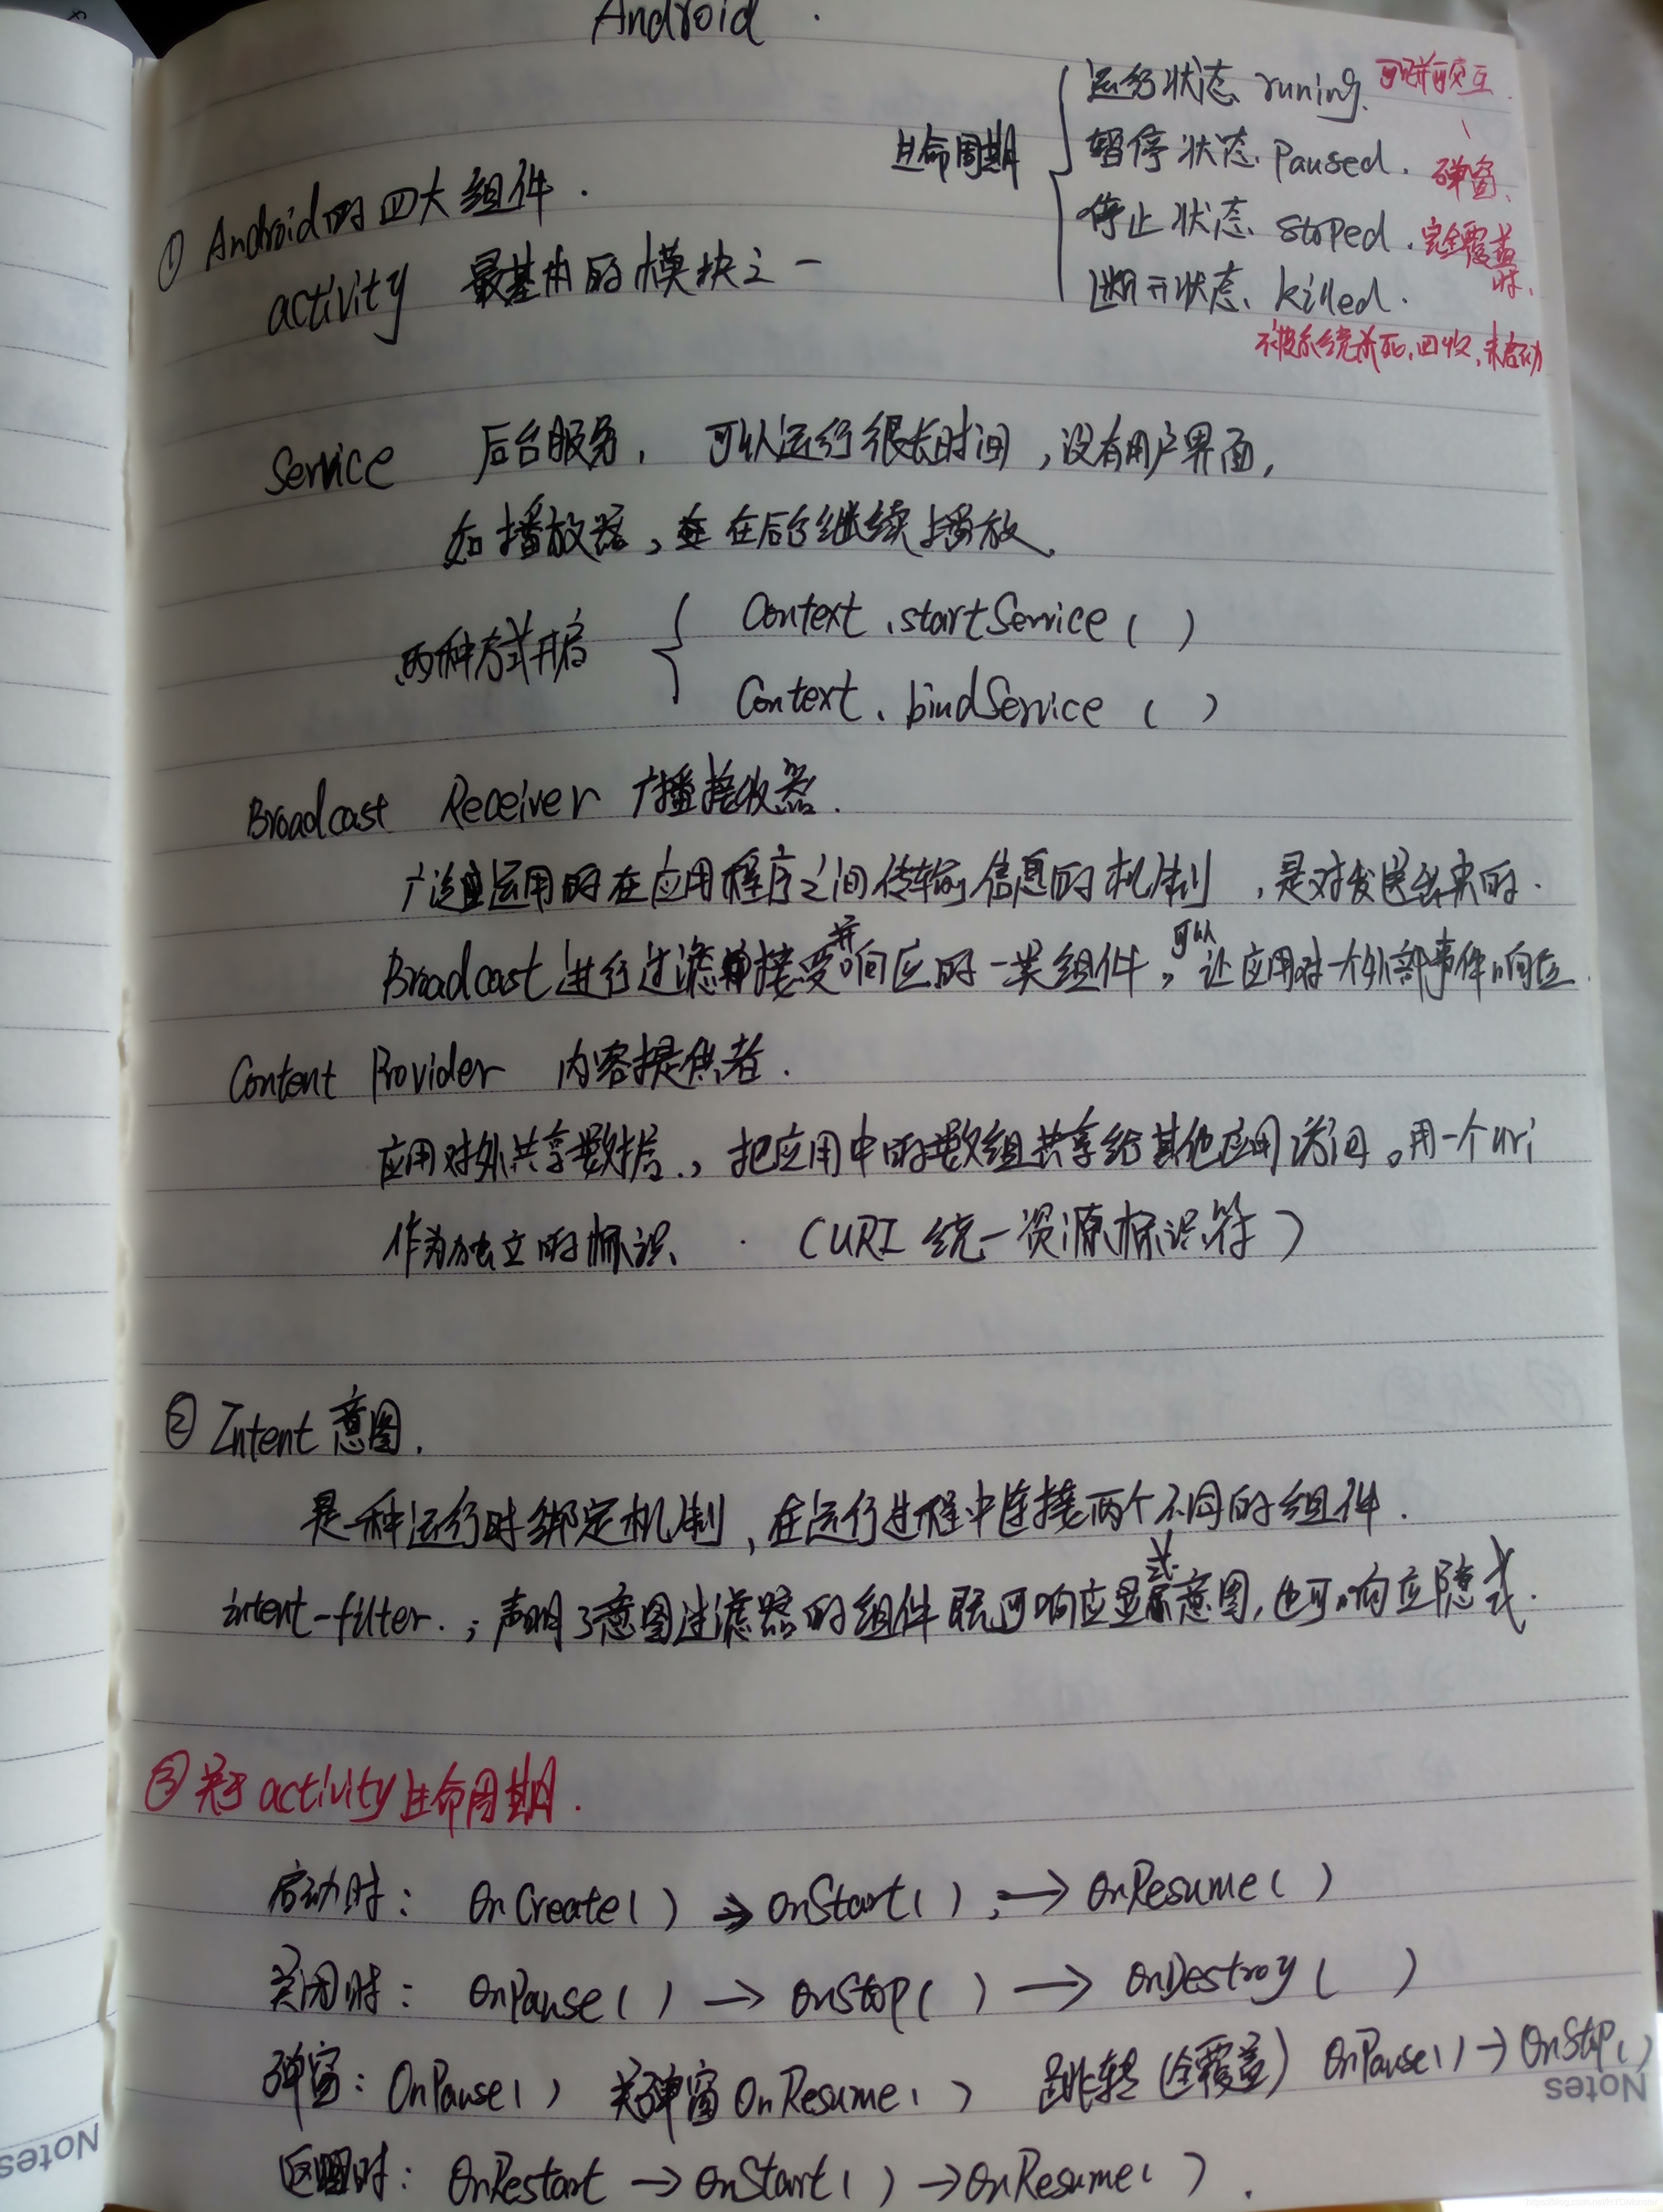 Android
生命周期
运行状态 runing. 可见并可交互.
暂停状态 Paused. 弹窗.
停止状态 stoped. 完全覆盖时.
状态 killed.
被系统杀死,回收,未启动
① Android的四大组件.
activity 最基本的模块之一
Service 后台服务, 可以运行很长时间,没有用户界面,
如播放器,在后台继续播放.
两种方式开启
Context.startService()
Context.bindService()
Broadcast Receiver 广播接收器.
广泛运用的在应用程序之间传输信息的机制,是对发送出来的.
Broadcast进行过滤接受并响应的一类组件,可以让应用对外部事件响应.
Content Provider 内容提供者.
应用对外共享数据.,把应用中的数组共享给其他应用访问。用一个uri
作为独立的标识、 (URI 统一资源标识符)
② Intent意图.
是一种运行时绑定机制,在运行过程中连接两个不同的组件.
intent-filter.;声明了意图过滤器的组件既可响应显式意图,也可响应隐式.
③ 关于activity生命周期.
启动时: OnCreate() → onStart() → onResume()
关闭时: onPause() → onStop() → onDestroy()
弹窗: OnPause() 关弹窗 OnResume() 跳转(全覆盖) OnPause() → OnStop()
返回时: OnRestart → onStart() → onResume().
Notes
Notes